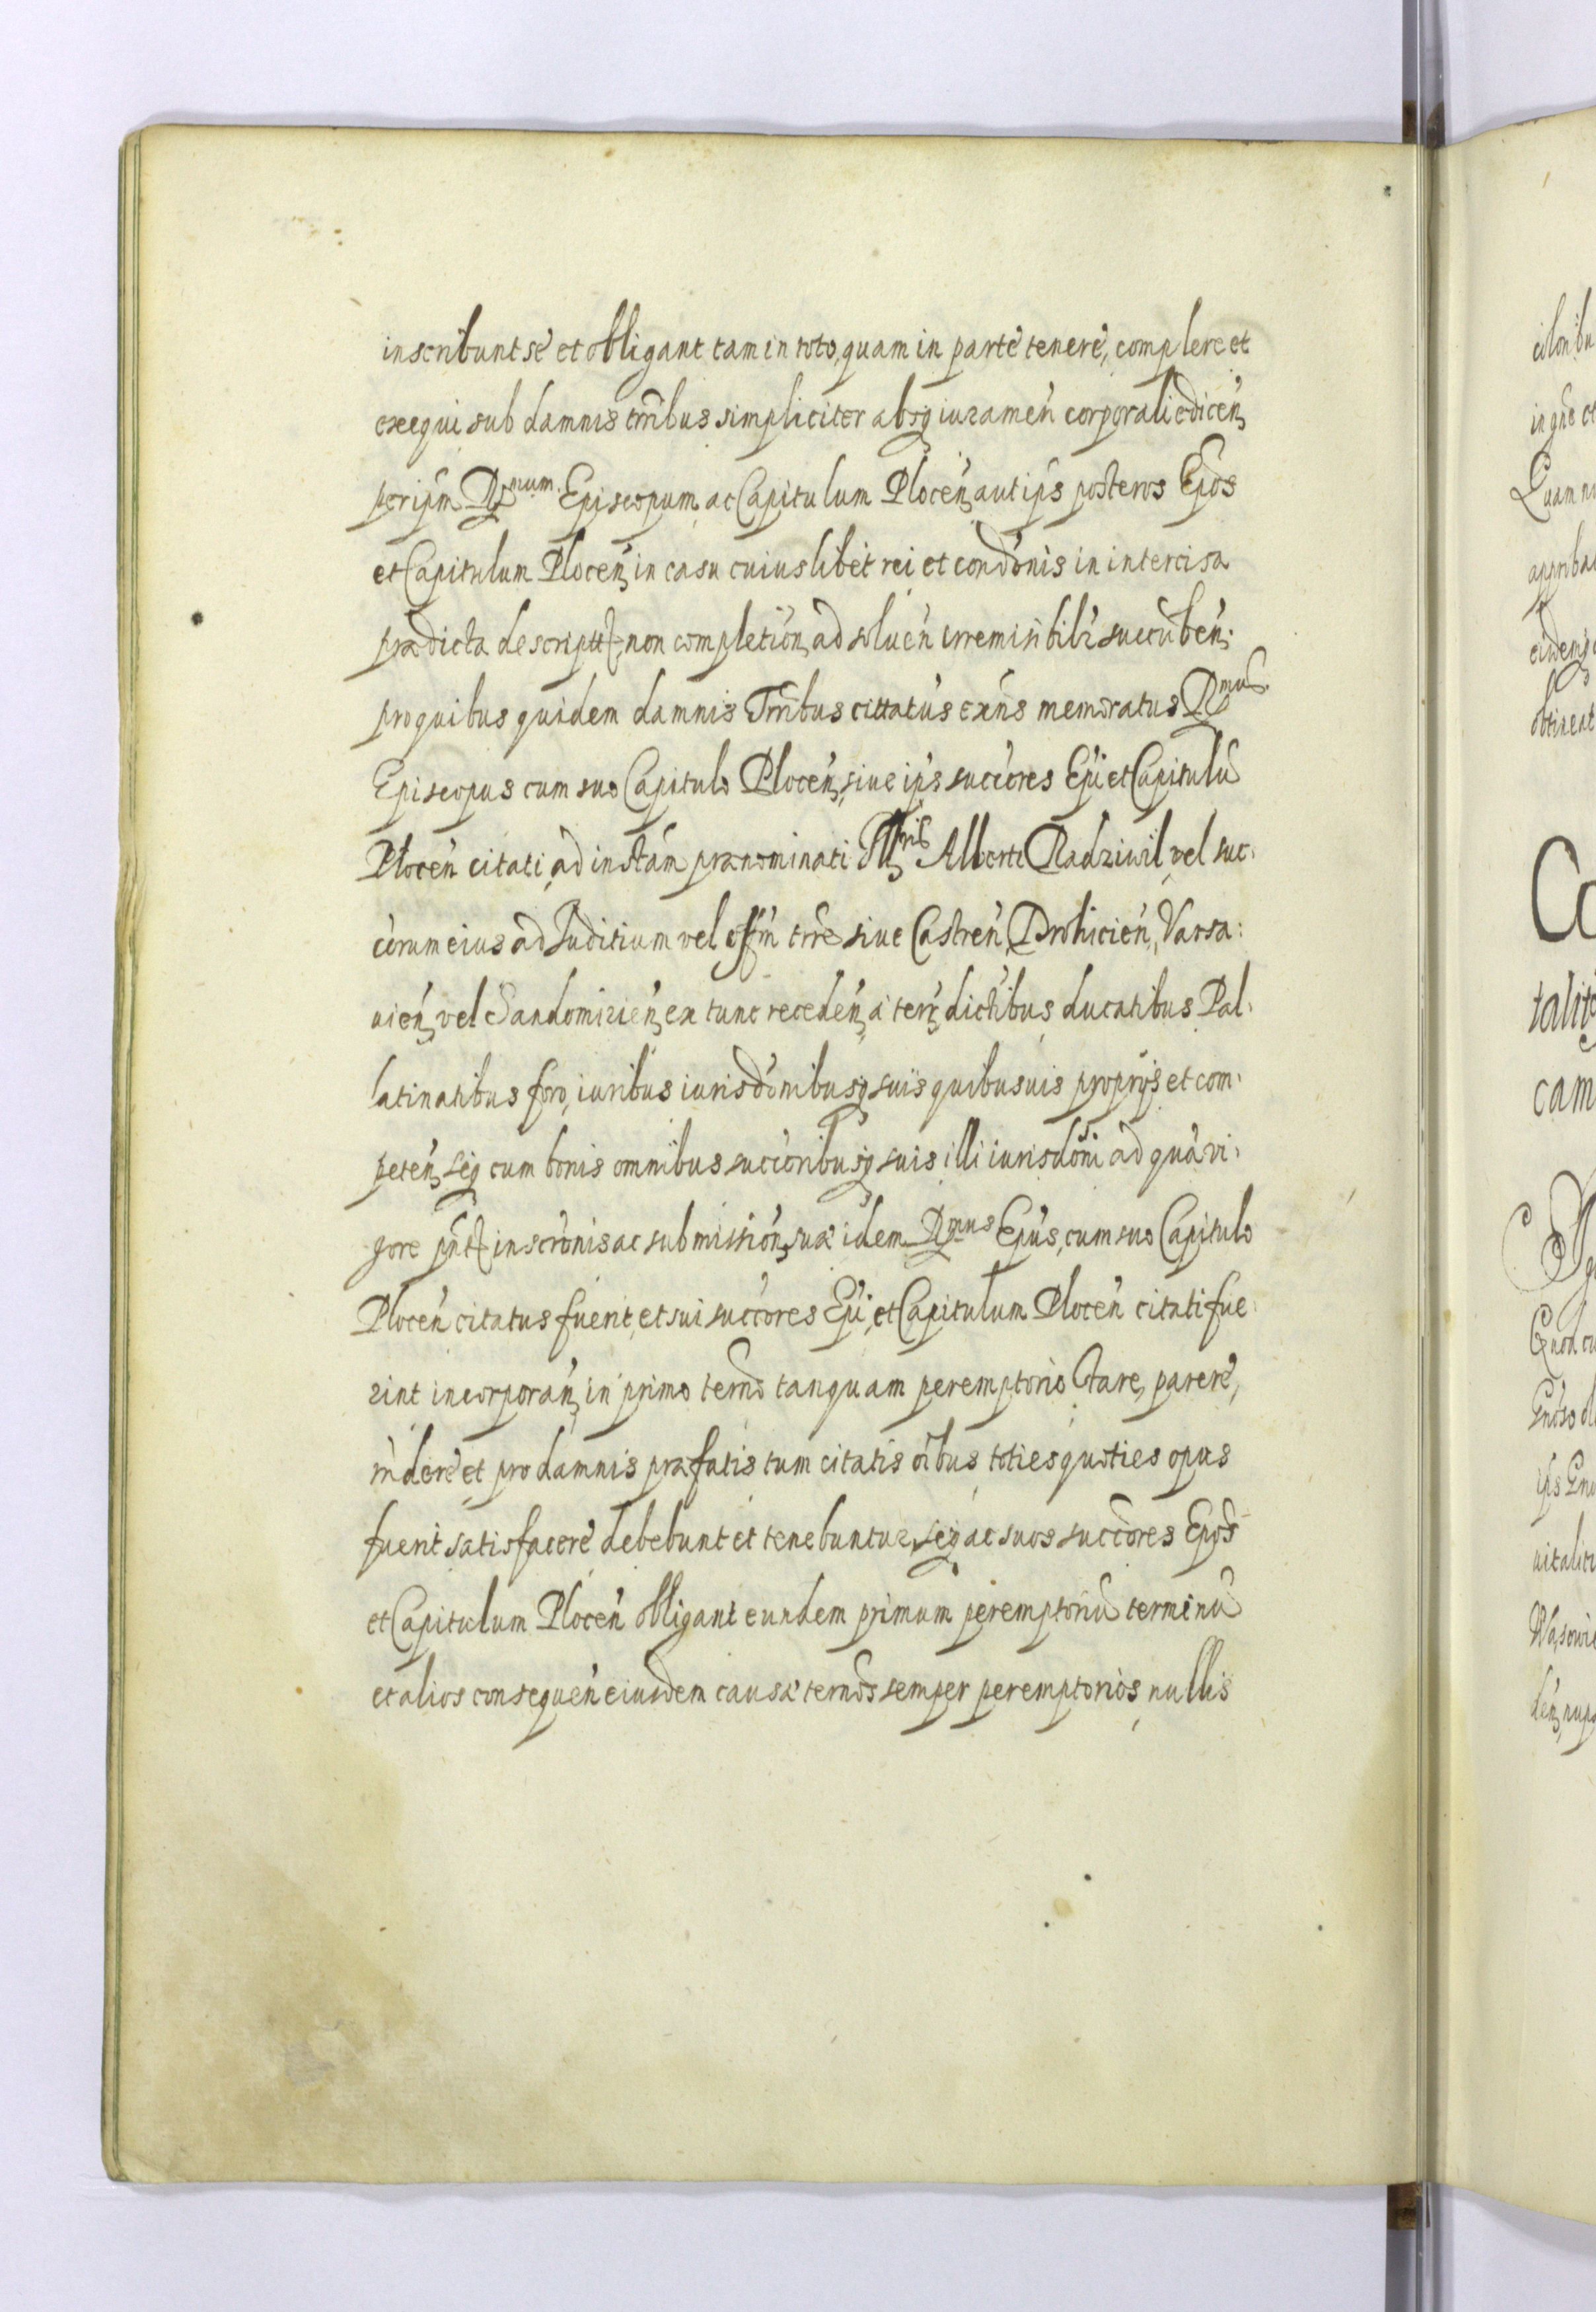 inscribunt se et obligant tam in toto, quam in parte tenere, complere et
exequi sub damnis trribus simpliciter absq iuramen corporali edicen
per ipm Rmum. Episcopum ac Capitulum Plocen aut ips posteros Epos
et Capitulum Plocen in casu cuiuslibet rei et condonis in intercisa
prædicta descript non completion ad soluen irremisibilr succuben:
pro quibus quidem damnis Trribus cittatus exns memoratus Rmus.
Episcopus cum suo Capitulo Plocen, siue ips succores Epi et Capitulu
Plocen citati, ad instam prænominati Illris Alberti Radziwil, vel suc:
corum eius ad Juditium vel offm trre siue Castren Drohicien, Varsa:
uien, vel Sandomirien, ex tunc receden a terr, dictibus ducatibus Pal:
latinatibus foro, iuribus iurisdonibusq suis quibusuis proprijs et com:
peten, seq cum bonis omnibus succoribusq suis illi iurisdoni ad qua vi:
gore pnt inscronis ac submission suæ idem Rmus Epus, cum suo Capitulo
Plocen citatus fuerit, et sui succores Epi, et Capitulum Plocen citati fue:
rint incorporan, in primo terno tanquam peremptorio stare, parere,
rndere et pro damnis præfatis tum citatis oibus toties quoties opus
fuerit satisfacere debebunt et tenebuntur, seq ac suos succores Epos
et Capitulum Plocen obligant eundem primum peremptoriu terminu
et alios consequen eiusdem causæ ternos semper peremptorios, nullis